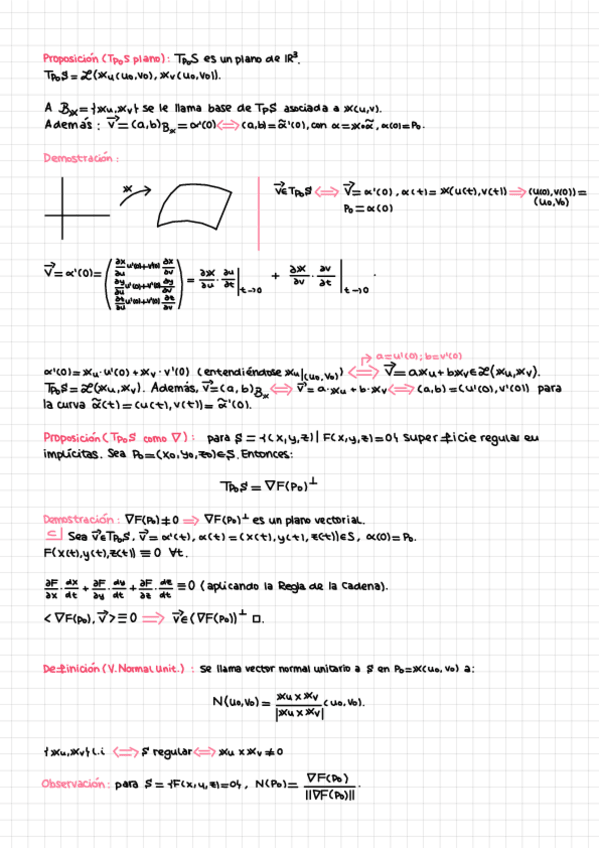 Proposición (Tp₀S plano): Tp₀S es un plano de ℝ³.
Tp₀S = ℒ(𝕏u(u₀,v₀), 𝕏v(u₀,v₀)).
A B𝕏 = {𝕏u, 𝕏v} se le llama base de TpS asociada a 𝕏(u,v).
Además: v⃗ = (a,b)B𝕏 = α'(0) ⟺ (a,b) = α̃'(0), con α = 𝕏∘α̃, α(0) = P₀.
Demostración:
𝕏
v⃗ ∈ Tp₀S ⟺ v⃗ = α'(0), α(t) = 𝕏(u(t), v(t)) ⟹ (u(0), v(0)) = (u₀, v₀)
P₀ = α(0)
v⃗ = α'(0) = (∂x/∂u u'(0) + v'(0) ∂x/∂v ; ∂y/∂u u'(0) + v'(0) ∂y/∂v ; ∂z/∂u u'(0) + v'(0) ∂z/∂v) = ∂𝕏/∂u · ∂u/∂t |t→0 + ∂𝕏/∂v · ∂v/∂t |t→0 .
a = u'(0); b = v'(0)
α'(0) = 𝕏u · u'(0) + 𝕏v · v'(0) (entendiéndose 𝕏u|(u₀,v₀)) ⟺ v⃗ = a𝕏u + b𝕏v ∈ ℒ(𝕏u, 𝕏v).
Tp₀S = ℒ(𝕏u, 𝕏v). Además, v⃗ = (a,b)B𝕏 ⟺ v⃗ = a·𝕏u + b·𝕏v ⟺ (a,b) = (u'(0), v'(0)) para
la curva α̃(t) = (u(t), v(t)) = α̃'(0).
Proposición (Tp₀S como ∇): para S = {(x,y,z) | F(x,y,z) = 0} superficie regular en
implícitas. Sea P₀ = (x₀,y₀,z₀) ∈ S. Entonces:
Tp₀S = ∇F(P₀)⊥
Demostración: ∇F(P₀) ≠ 0 ⟹ ∇F(P₀)⊥ es un plano vectorial.
⊂] Sea v⃗ ∈ Tp₀S, v⃗ = α'(t), α(t) = (x(t), y(t), z(t)) ∈ S, α(0) = P₀.
F(x(t), y(t), z(t)) ≡ 0 ∀t.
∂F/∂x · dx/dt + ∂F/∂y · dy/dt + ∂F/∂z · dz/dt ≡ 0 (aplicando la Regla de la Cadena).
<∇F(P₀), v⃗> ≡ 0 ⟹ v⃗ ∈ (∇F(P₀))⊥ □.
Definición (V. Normal Unit.): se llama vector normal unitario a S en P₀ = 𝕏(u₀,v₀) a:
N(u₀,v₀) = 𝕏u x 𝕏v / |𝕏u x 𝕏v| (u₀,v₀).
{𝕏u, 𝕏v} l.i ⟺ S regular ⟺ 𝕏u x 𝕏v ≠ 0
Observación: para S = {F(x,y,z) = 0}, N(P₀) = ∇F(P₀) / ||∇F(P₀)|| .